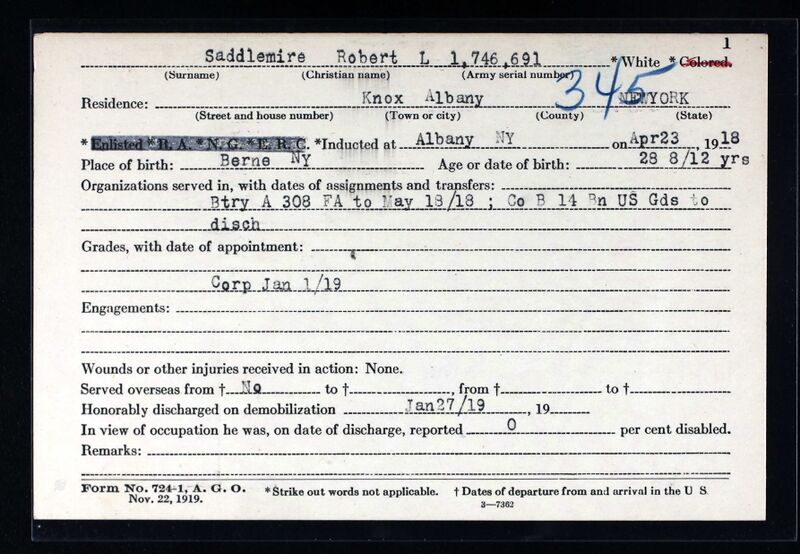 1
Saddlemire Robert L 1,746,691 * White * Colored.
(Surname) (Christian name) (Army serial number)
345
Residence: Knox Albany NEWYORK
(Street and house number) (Town or city) (County) (State)
* Enlisted * R. A. * N. G. * E. R. C. * Inducted at Albany NY on Apr23, 1918
Place of birth: Berne NY Age or date of birth: 28 8/12 yrs
Organizations served in, with dates of assignments and transfers:
Btry A 308 FA to May 18/18 ; Co B 14 Bn US Gds to
disch
Grades, with date of appointment:
Corp Jan 1/19
Engagements:
Wounds or other injuries received in action: None.
Served overseas from † No to †, from † to †
Honorably discharged on demobilization Jan27/19, 19
In view of occupation he was, on date of discharge, reported 0 per cent disabled.
Remarks:
Form No. 724-1, A. G. O. * Strike out words not applicable. † Dates of departure from and arrival in the U S
Nov. 22, 1919. 3—7362